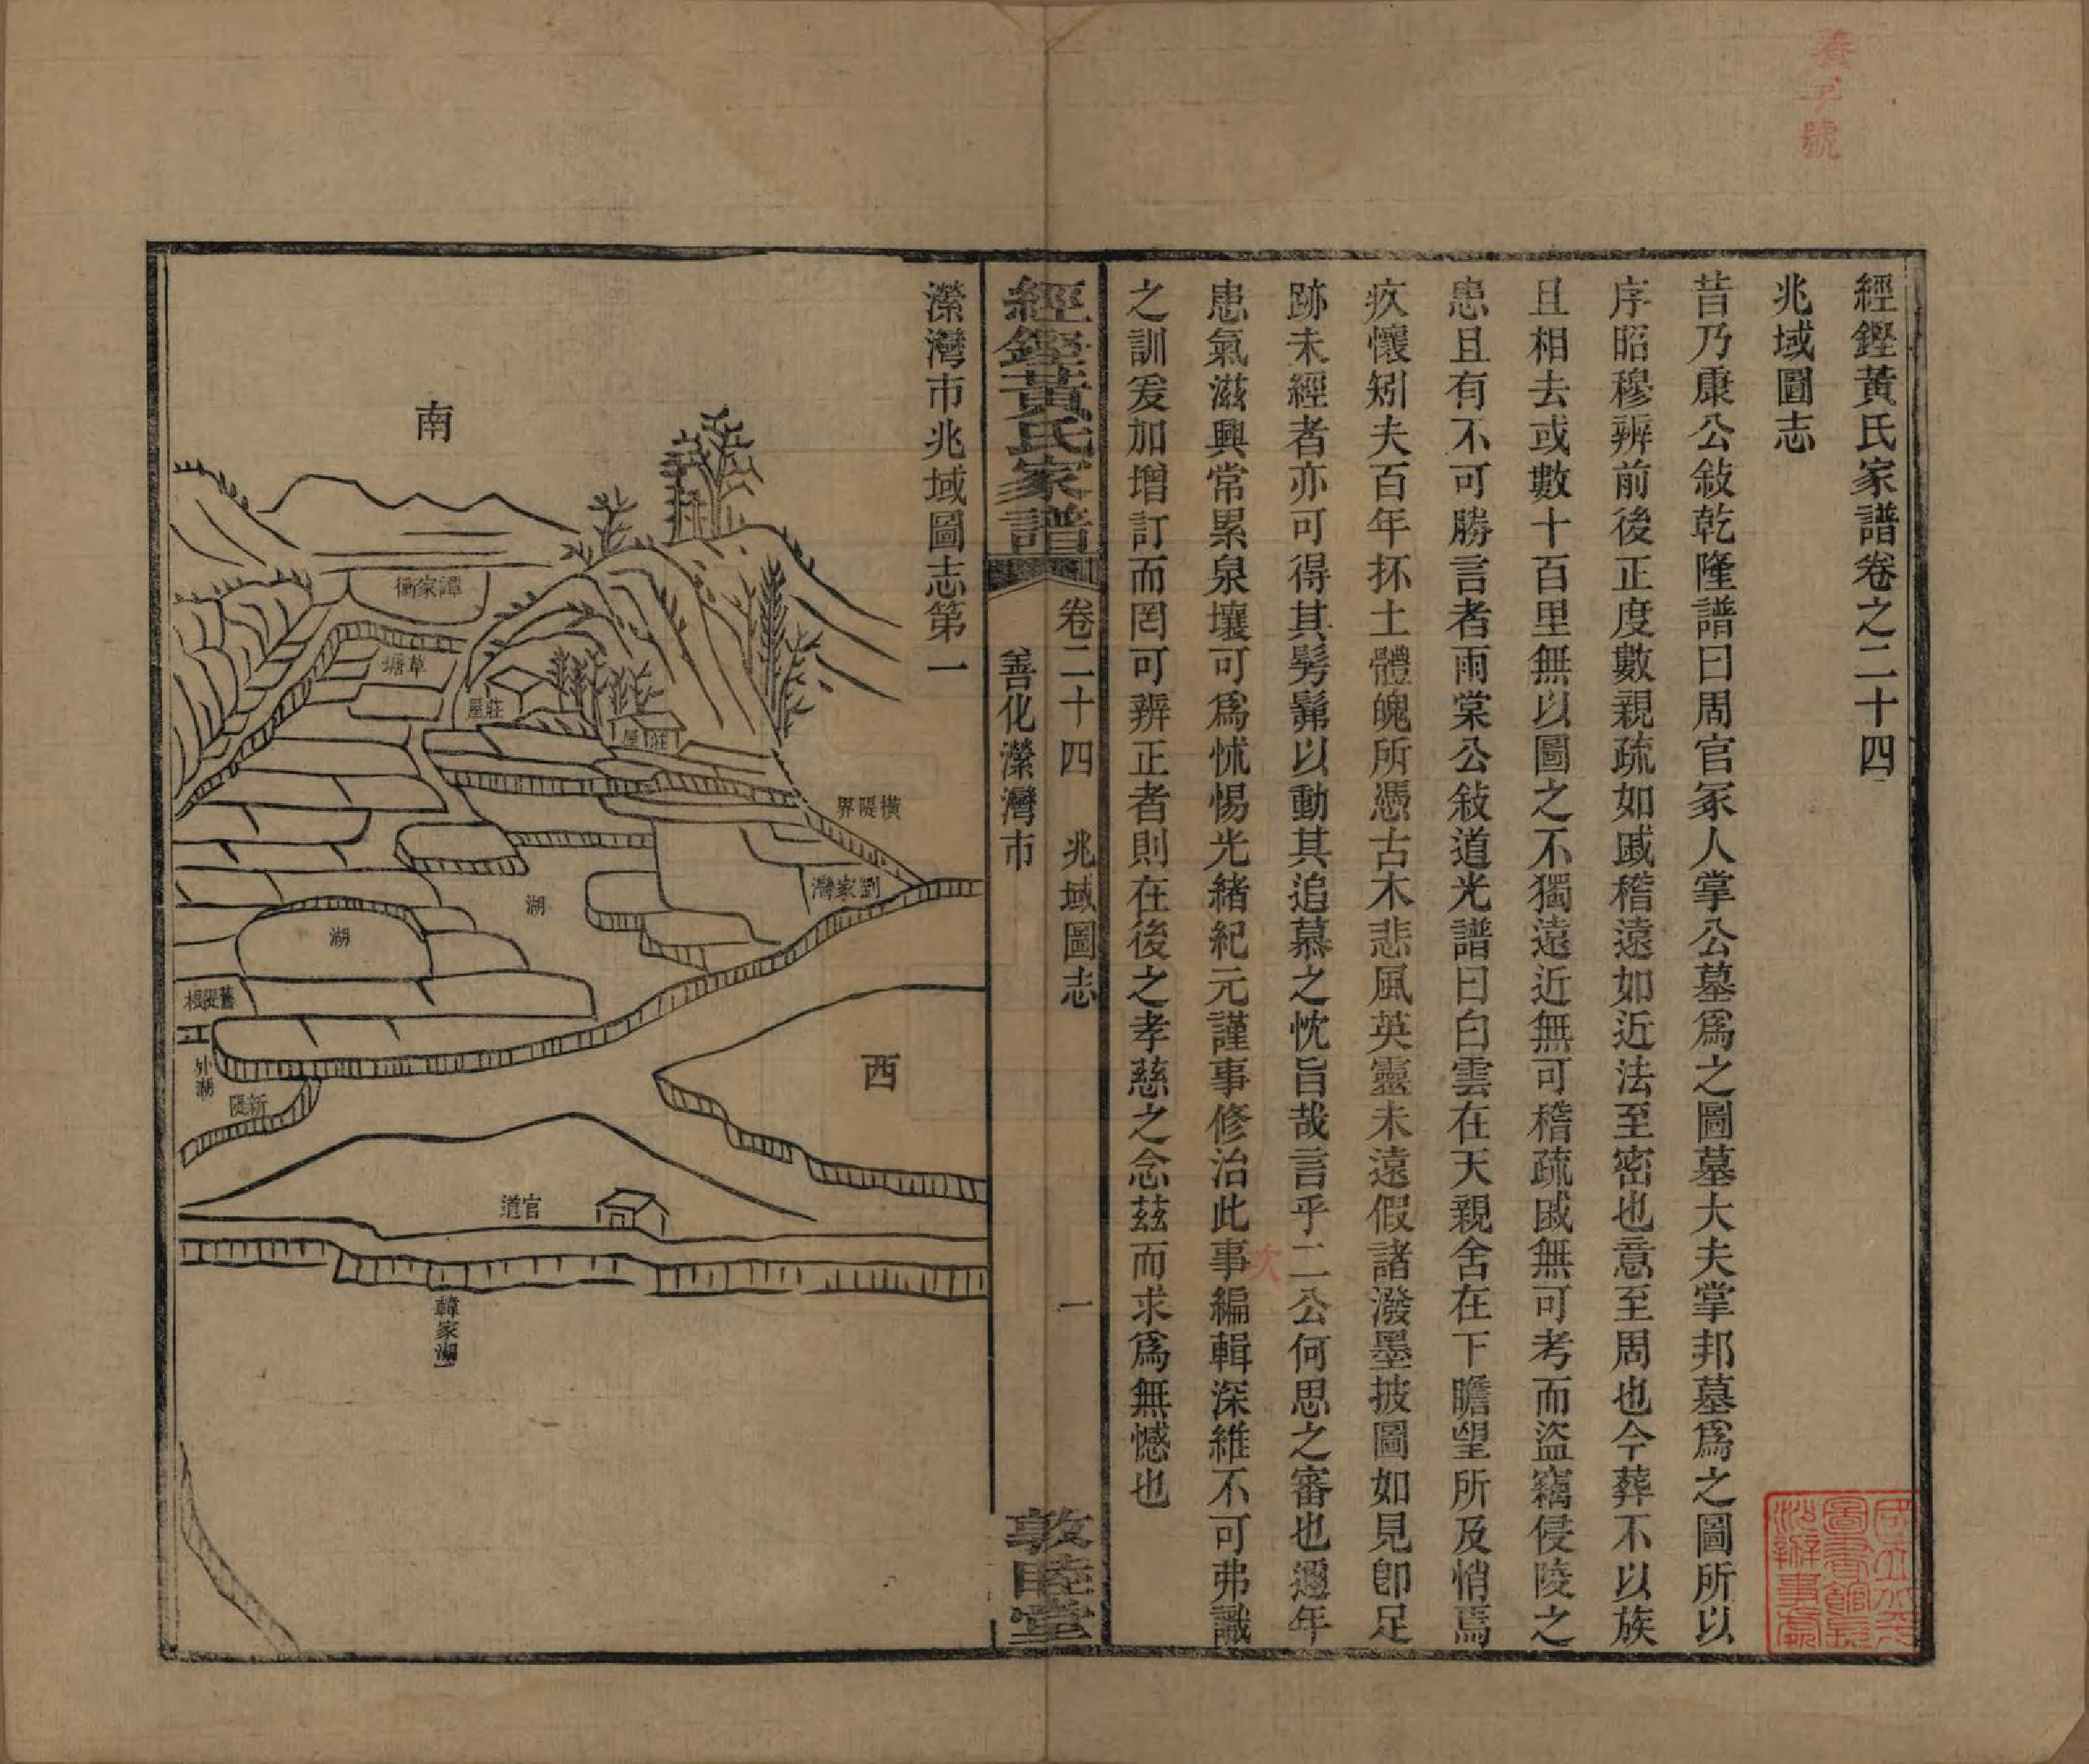 經鏗黃氏家譜卷之二十四
兆域圖志
昔乃康公敍乾隆譜曰周官冢人掌公墓爲之圖墓大夫掌邦墓爲之圖所以
序昭穆辨前後正度數親疏如戚稽遠如近法至密也意至周也今葬不以族
且相去或數十百里無以圖之不獨遠近無可稽疏戚無可考而盜竊侵陵之
患且有不可勝言者雨棠公敍道光譜曰白雲在天親舍在下瞻望所及悄焉
疚懷矧夫百年抔土體魄所憑古木悲風英靈未遠假諸潑墨披圖如見卽足
跡未經者亦可得其髣髴以動其追慕之忱旨哉言乎二公何思之審也邇年
患氣滋興常累泉壤可爲怵惕光緒紀元謹事修治此事編輯深維不可弗識
之訓爰加增訂而罔可辨正者則在後之孝慈之念茲而求爲無憾也
經鏗黃氏家譜
卷二十四 兆域圖志
善化濚灣市
一
敦睦堂
濚灣市兆域圖志第一
南
譚家衝
草塘
莊屋
莊屋
橫隄界
劉家灣
湖
湖
舊隄根
外湖
新隄
西
官道
韓家湖
次
國立北平
圖書館長
沙辦事處